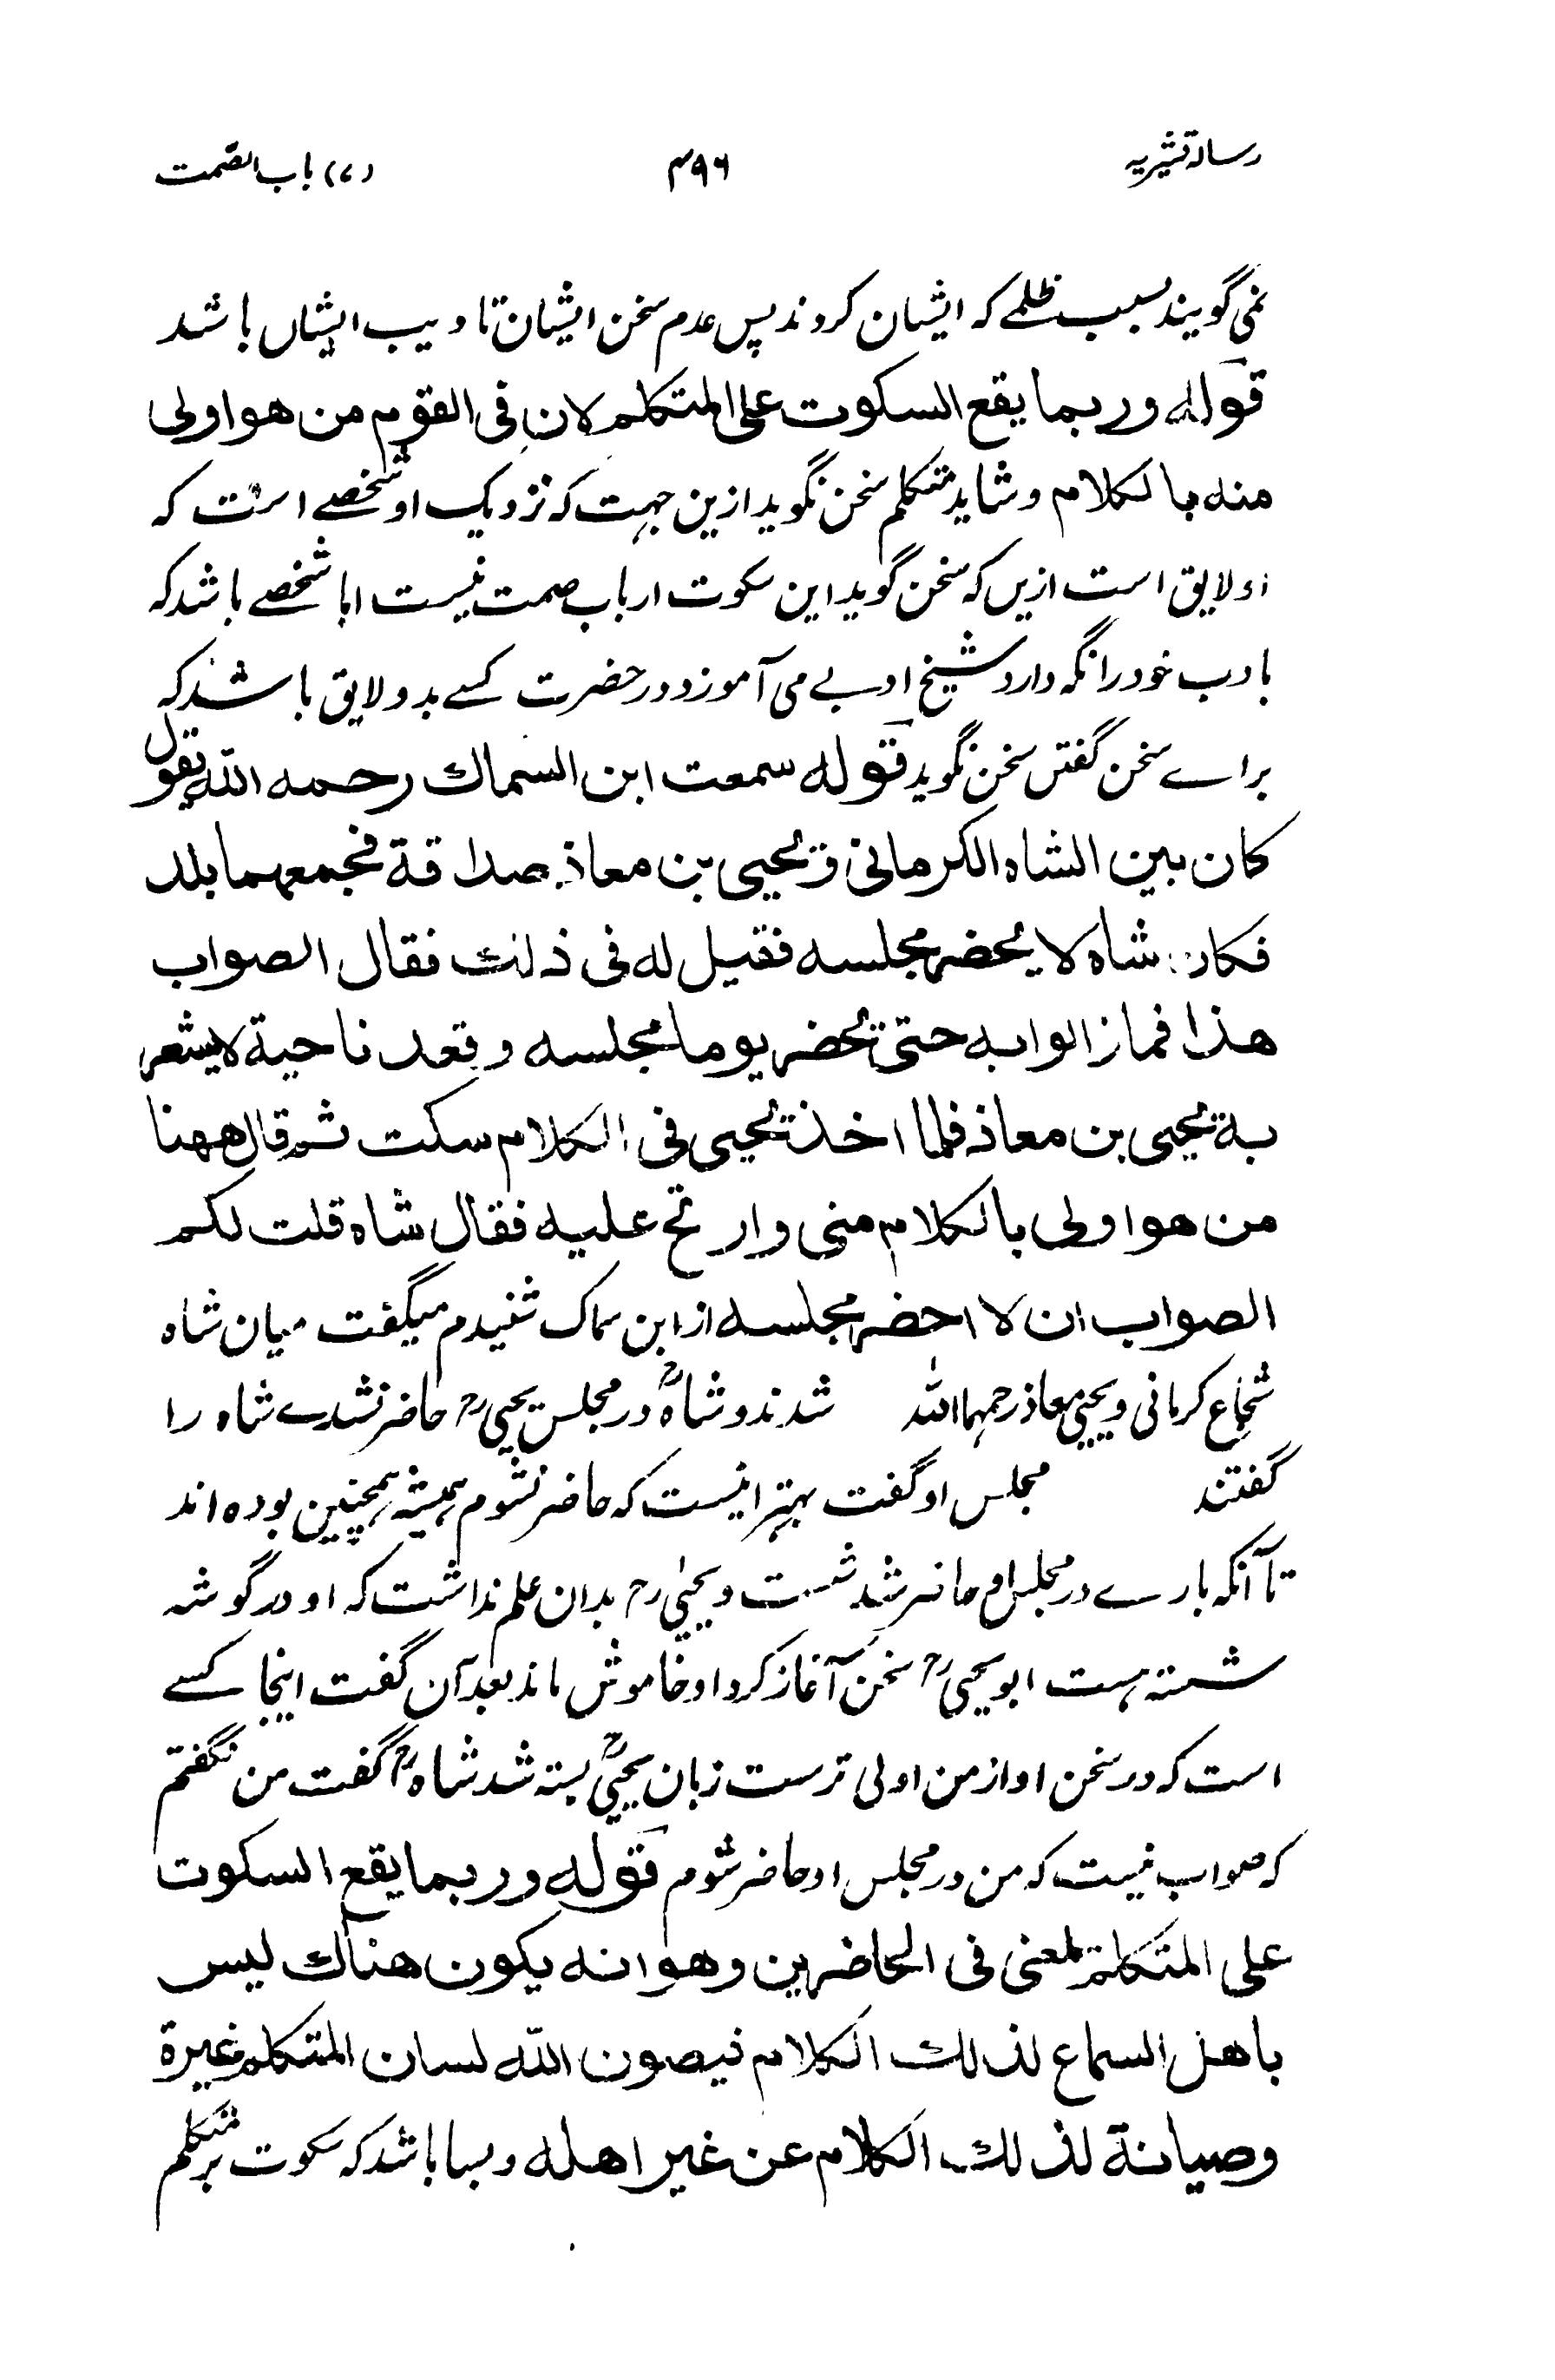 رسالہ قشیریہ ۴۹۶ (۷) باب الصمت
نمی گویند بسبب ظلمے کہ ایشان کردند پس عدم سخن ایشان تادیب ایشاں باشد
قوله وربما يقع السكوت على المتكلم لان فى القوم من هو اولى
منه بالكلام وشاید متکلم سخن نگوید ازین جہت کہ نزدیک او شخصے است کہ
او لایق است ازیں کہ سخن گوید این سکوت ارباب صمت نیست اما شخصے باشد کہ
بادب خود را نگہ دارد شیخ ادبے می آموزد در حضرت کسے بدو لایق باشد کہ
براے سخن گفتن سخن نگوید قوله سمعت ابن السماك رحمه الله يقول
كان بين الشاه الكرمانى و يحيى بن معاذ صداقة فجمعهما بلد
فكان شاه لا يحضر مجلسه فقيل له فى ذلك فقال الصواب
هذا فمازالوا به حتى حضر يوما مجلسه وقعد ناحية لايشعر
به يحيى بن معاذ فلما اخذ يحيى فى الكلام سكت ثم قال ههنا
من هو اولى بالكلام منى وارتج عليه فقال شاه قلت لكم
الصواب ان لا احضر مجلسه از ابن سماک شنیدم میگفت میان شاه
شجاع کرمانی و یحیی معاذ رحمہما اللہ شدند و شاہؒ در مجلس یحیی رح حاضر نشدے شاہ را
گفتند مجلس او گفت بہتر اینست کہ حاضر نشوم ہمیشہ ہمچنین بودہ اند
تا آنکہ بارے در مجلس او حاضر شد نشست و یحیی رح بدان علم نداشت کہ او در گوشہ
نشستہ ہست ابو یحیی رح سخن آغاز کرد او خاموش ماند بعد آن گفت اینجا کسے
است کہ در سخن او از من اولی ترست زبان یحییؒ بستہ شد شاہؒ گفت من نگفتم
کہ صواب نیست کہ من در مجلس او حاضر شوم قوله وربما يقع السكوت
على المتكلم لمعنى فى الحاضرين وهو انه يكون هناك ليس
باهل السماع لذلك الكلام فيصون الله لسان المتكلم غيرة
وصيانة لذلك الكلام عن غير اهله و بسا باشد کہ سکوت بر متکلم